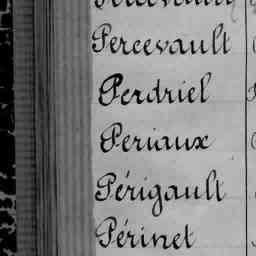 Percevault
Perdriel
Periaux
Périgault
Périnet